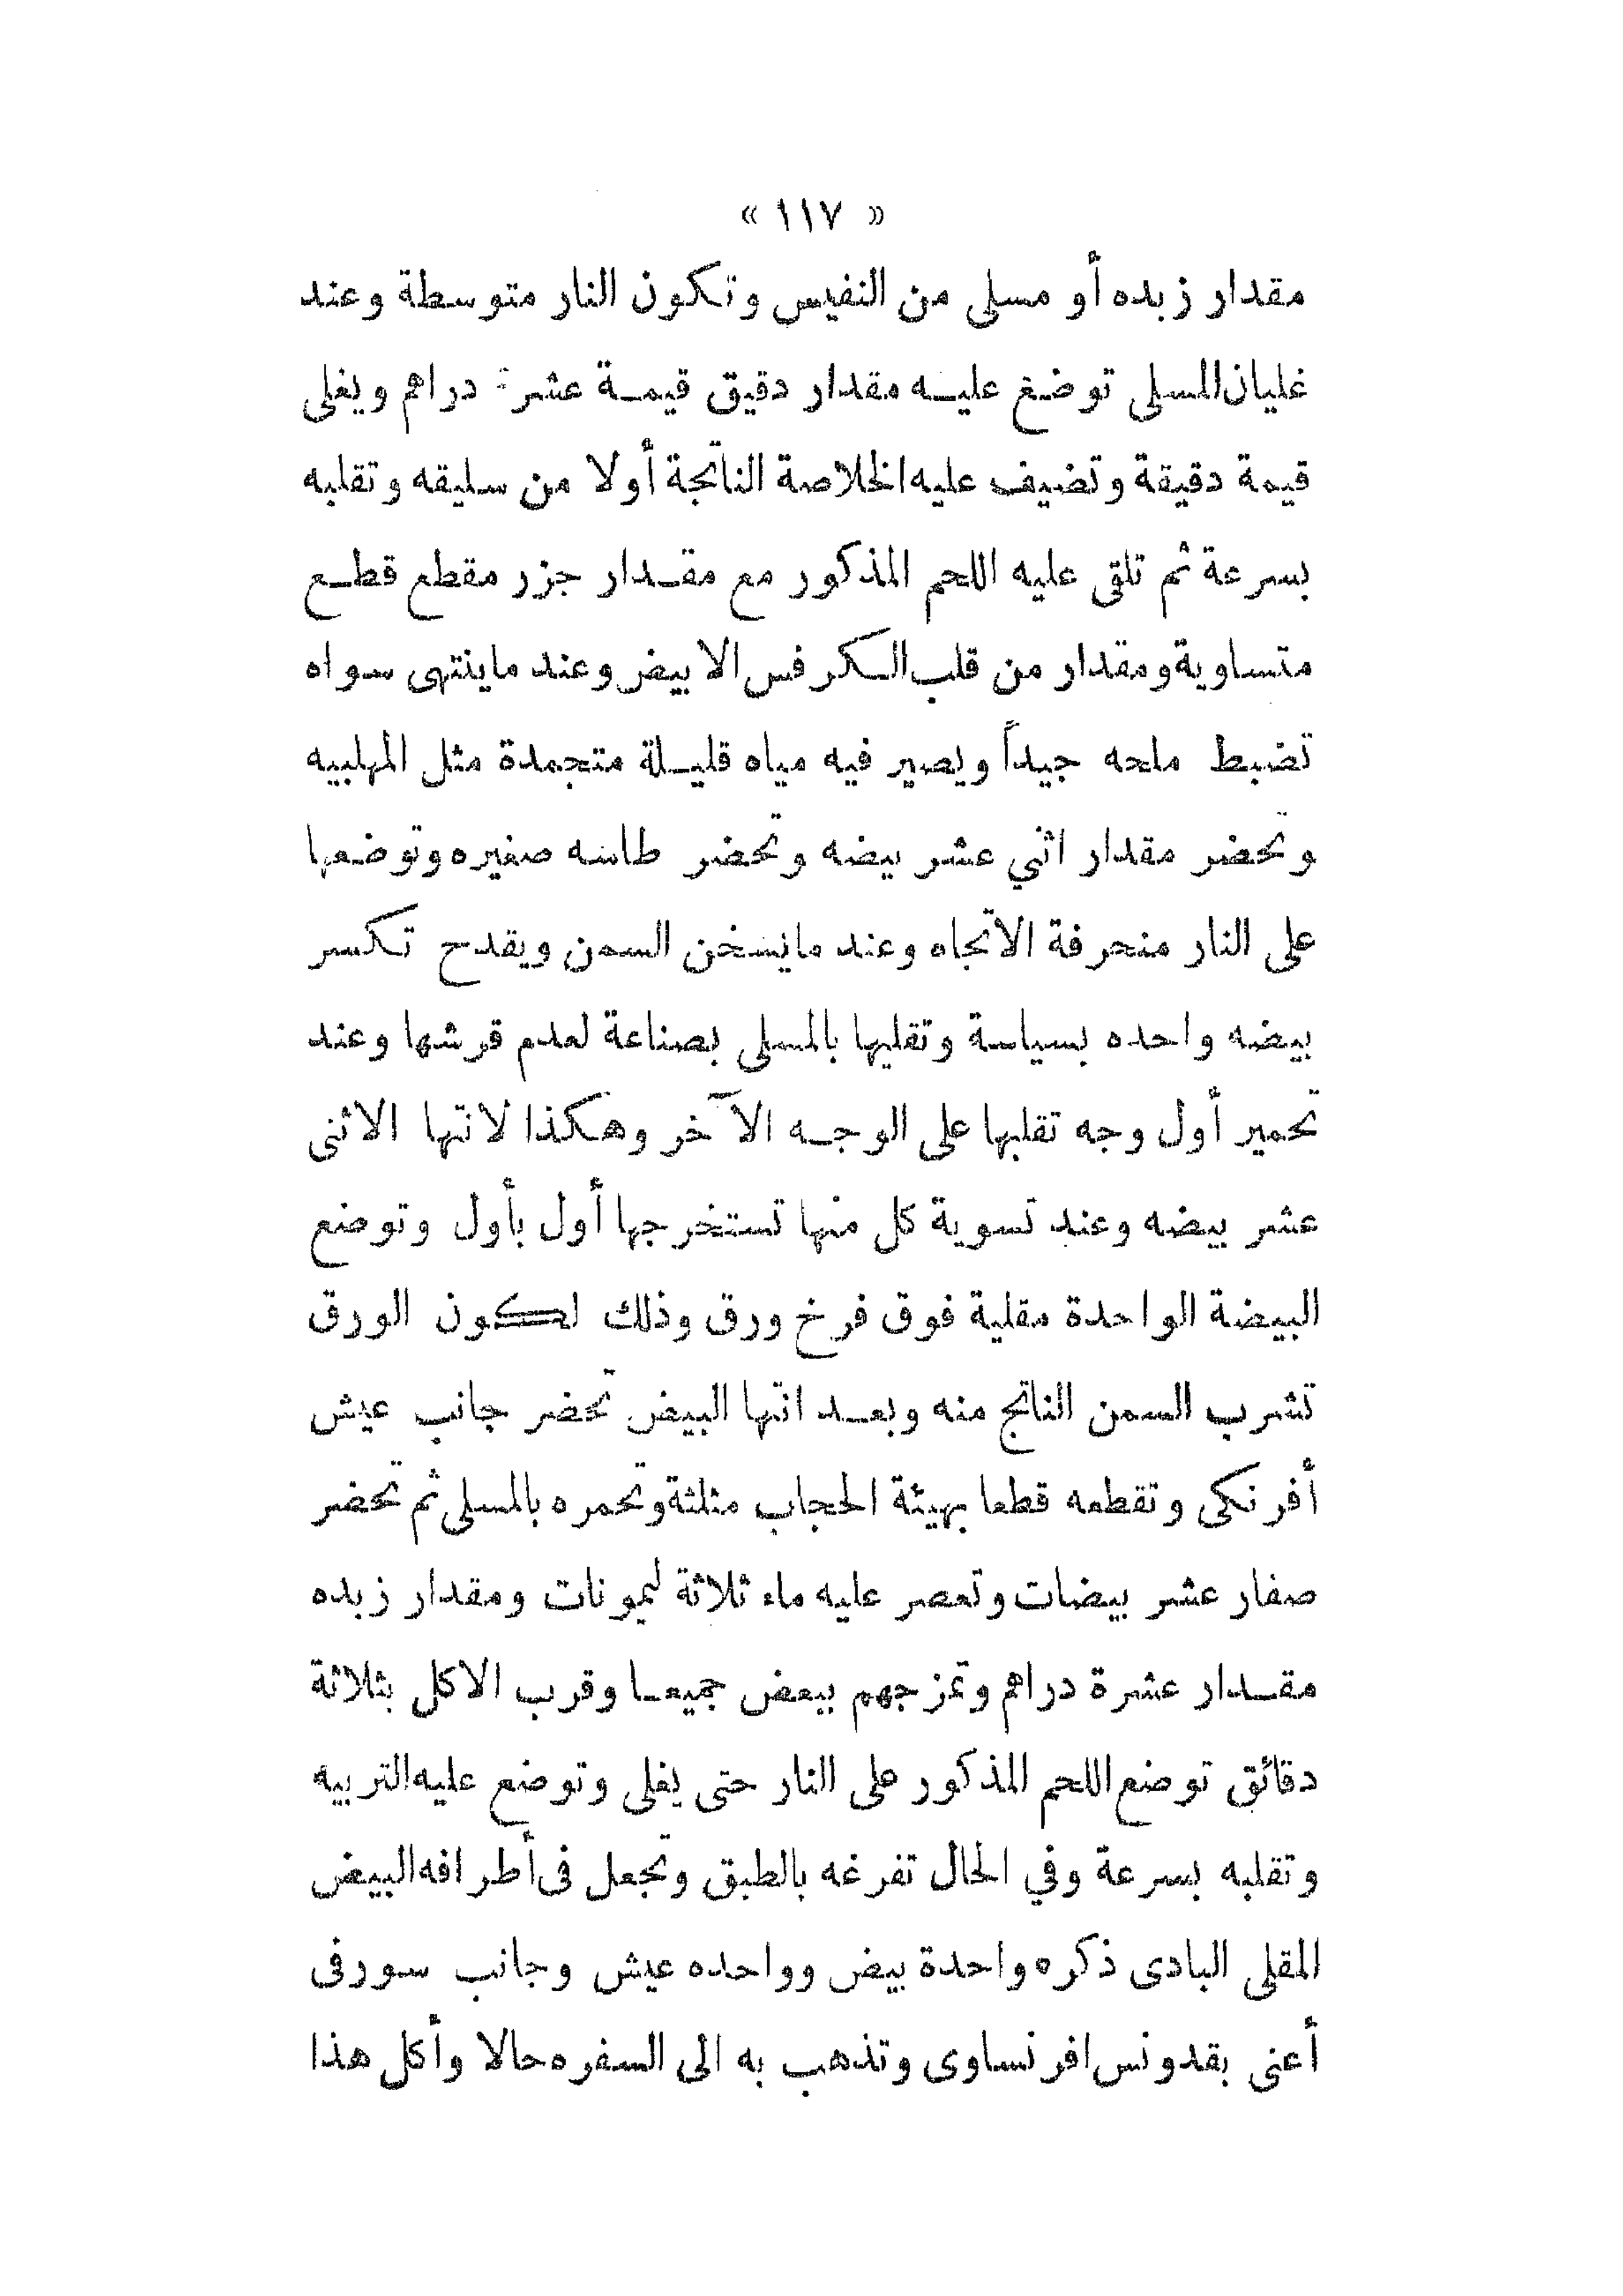 « ١١٧ »
مقدار زبده أو مسلى من النفيس وتكون النار متوسطة وعند
غليان المسلى توضع عليه مقدار دقيق قيمة عشرة دراهم ويغلى
قيمة دقيقة وتضيف عليه الخلاصة الناتجة أولا من سليقه وتقلبه
بسرعة ثم تلقى عليه اللحم المذكور مع مقدار جزر مقطع قطع
متساوية ومقدار من قلب الكرفس الابيض وعند ماينتهى سواه
تضبط ملحه جيداً ويصير فيه مياه قليلة متجمدة مثل المهلبيه
وتحضر مقدار اثني عشر بيضه وتحضر طاسه صغيره وتوضعها
على النار منحرفة الاتجاه وعند مايسخن السمن ويقدح تكسر
بيضه واحده بسياسة وتقليها بالمسلى بصناعة لعدم قرشها وعند
تحمير أول وجه تقلبها على الوجه الآخر وهكذا لانتها الاثنى
عشر بيضه وعند تسوية كل منها تستخرجها أول بأول وتوضع
البيضة الواحدة مقلية فوق فرخ ورق وذلك لكون الورق
تشرب السمن الناتج منه وبعد انتها البيض تحضر جانب عيش
أفرنكى وتقطعه قطعا بهيئة الحجاب مثلثة وتحمره بالمسلى ثم تحضر
صفار عشر بيضات وتعصر عليه ماء ثلاثة ليمونات ومقدار زبده
مقدار عشرة دراهم وتمزجهم ببعض جميعا وقرب الاكل بثلاثة
دقائق توضع اللحم المذكور على النار حتى يغلى وتوضع عليه التربيه
وتقلبه بسرعة وفي الحال تفرغه بالطبق وتجعل فى أطرافه البيض
المقلى البادى ذكره واحدة بيض وواحده عيش وجانب سورفى
أعنى بقدونس افرنساوى وتذهب به الى السفره حالا وأكل هذا